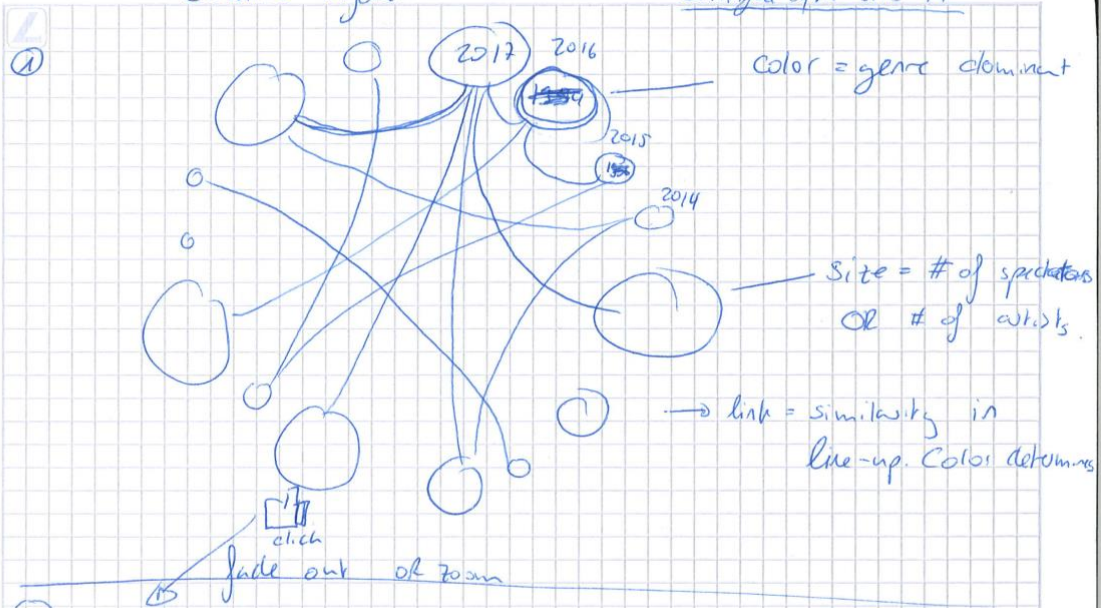 ①
2017
2016
color = genre dominant
2015
2014
Size = # of spectators
OR # of artists.
→ link = similarity in
line-up. Color determines
click
fade out OR zoom